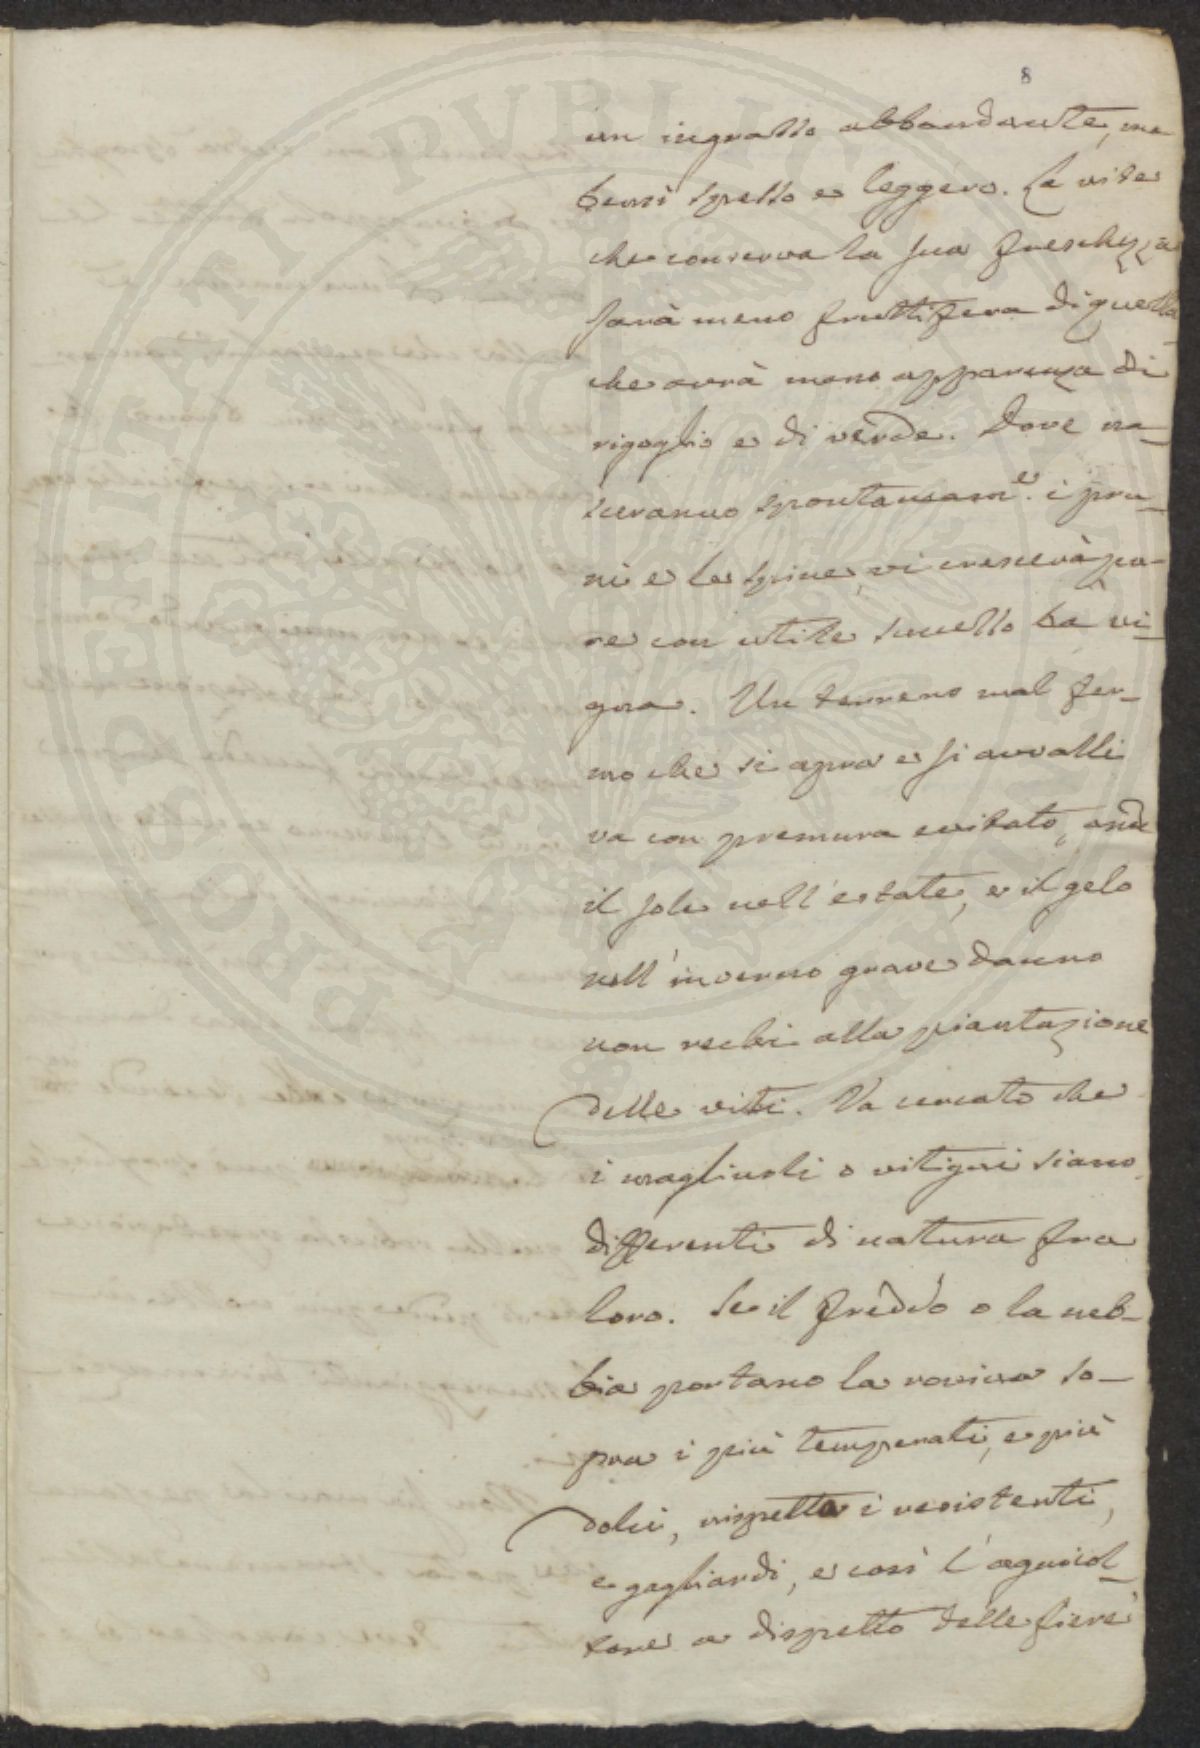 8
un ingrasso abbondante, ma
bensì spesso e leggero. La vite
che conserva la sua freschezza
sarà meno fruttifera di quella
che avrà meno apparenza di
rigoglio e di verde. Dove na-
sceranno spontaneam.e i pru-
ni e le spine, vi crescerà pu-
re con utile successo la vi-
gna. Un terreno mal fer-
mo che si apra e si avvalli
va con premura evitato, onde
il sole nell'estate, e il gelo
nell'inverno grave danno
non rechi alla piantazione
delle viti. Va cercato che
i magliuoli o vitigni siano
differenti di natura fra
loro. Se il freddo o la neb-
bia portano la rovina so-
pra i più temperati, e più
dolci, rispetta i resistenti,
e gagliardi, e così l'agricol-
tore a dispetto delle fiere
PROSPERITATI PVBLICAE AVGENDAE